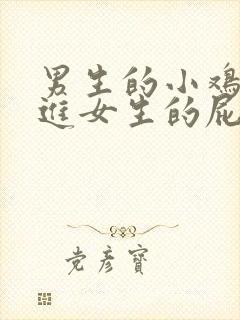 男生的小鸡
进女生的屁
党彦宝